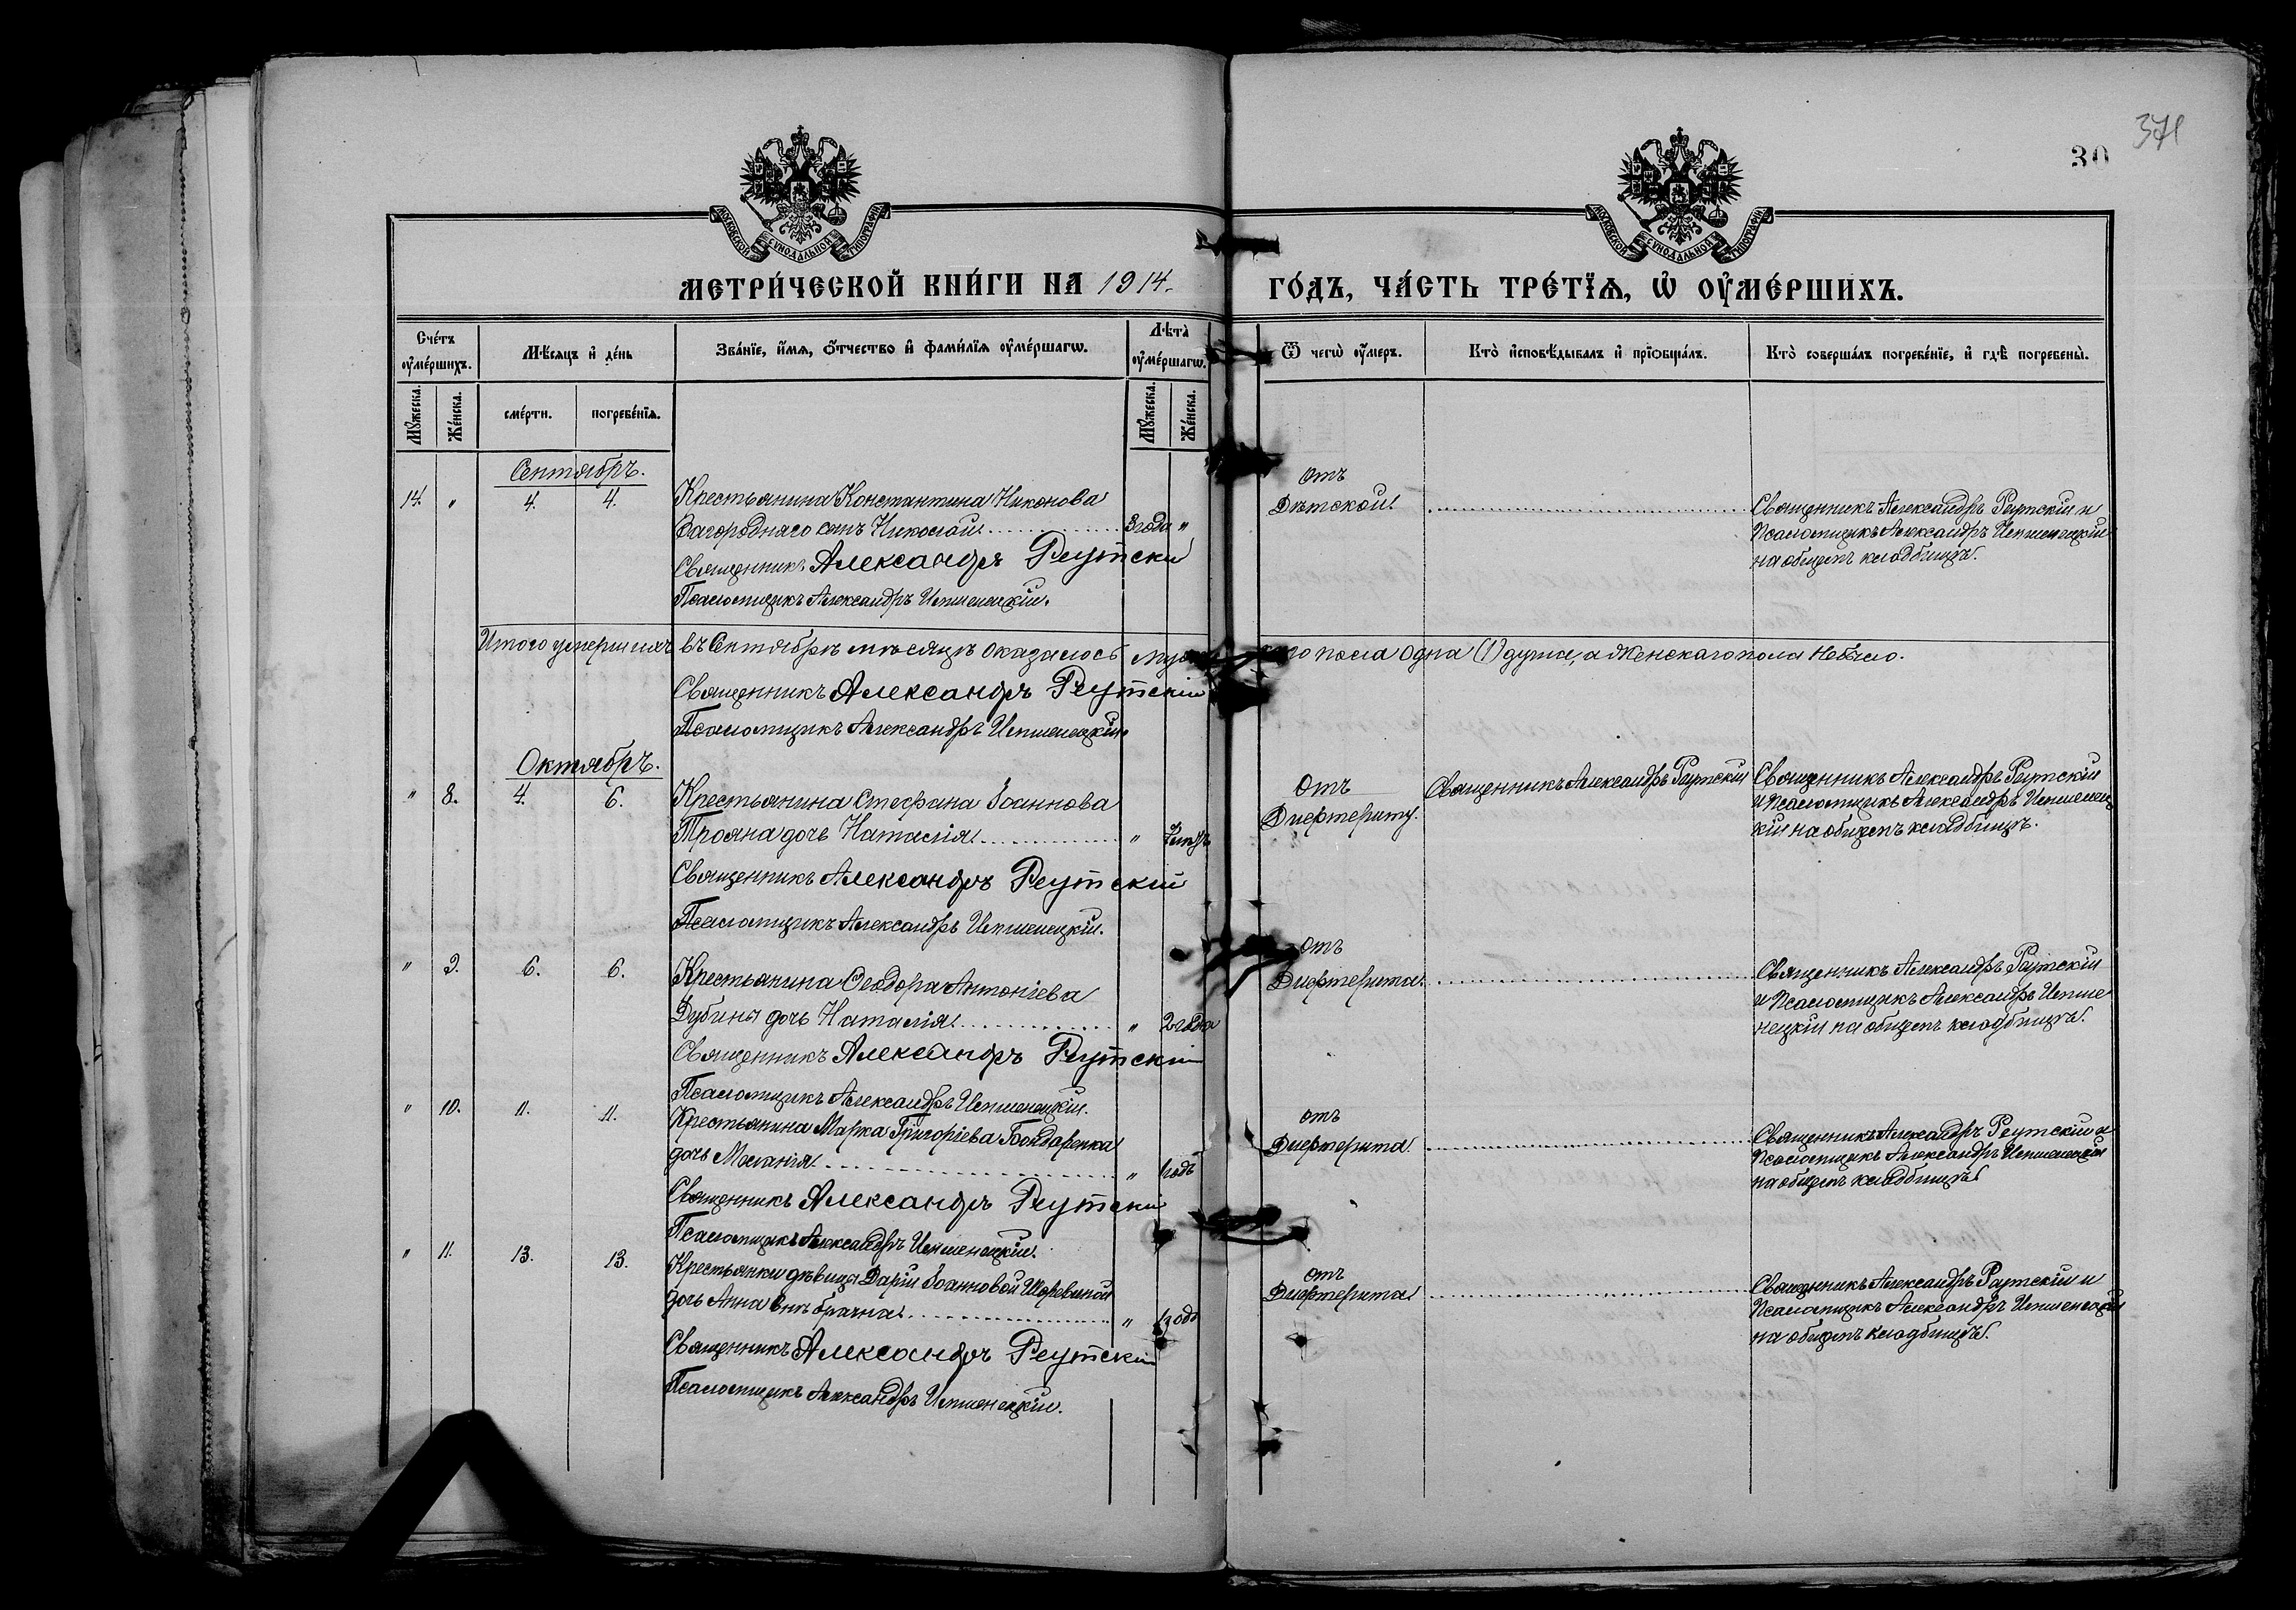 371
30
МОСКОВСКОЙ СѴНОДАЛЬНОЙ ТИПОГРАФІИ
МОСКОВСКОЙ СѴНОДАЛЬНОЙ ТИПОГРАФІИ
МЕТРИ́ЧЕСКОЙ КНИ́ГИ НА 1914.
ГО́ДЪ, ЧА́СТЬ ТРЕ́ТІѦ, Ѡ҆ ОУ҆МЕ́РШИХЪ.
Сче́тъ оу҆ме́ршихъ.
Мꙋ́жеска.
Же́нска.
Мѣ́сяцъ и҆ де́нь
сме́рти.
погребе́нїѧ.
Зва́нїе, и҆́мѧ, ѻ҆́тчество и҆ фами́лїѧ оу҆ме́ршагѡ.
Лѣ́та оу҆ме́ршагѡ.
Мꙋ́жеска.
Же́нска.
Ѿ чегѡ̀ оу҆́меръ.
Кто̀ и҆сповѣ́дывалъ и҆ прїѡбща́лъ.
Кто̀ соверша́лъ погребе́нїе, и҆ гдѣ̀ погребены̀.
Сентябрь.
14. " 4. 4. Крестьянина Константина Никонова
Загородняго сынъ Николай. 3 года "
Священникъ Александръ Реутскій
Псаломщикъ Александръ
отъ
Дѣтской.
Священникъ Александръ Реутскій и
Псаломщикъ Александръ
на общемъ кладбищѣ.
Итого умершихъ въ Сентябрѣ мѣсяцѣ оказалось пола одна (1) душа, а женскаго пола не было.
Священникъ Александръ Реутскій
Псаломщикъ Александръ
Октябрь.
" 8. 4. 6. Крестьянина Стефана Іоаннова
Трояна дочь Наталія. "
Священникъ Александръ Реутскій
Псаломщикъ Александръ
отъ
Дифтериту.
Священникъ Александръ Реутскій
Священникъ Александръ Реутскій
и Псаломщикъ Александръ
кій на общемъ кладбищѣ.
" 9. 6. 6. Крестьянина Ѳеодора Антоніева
Дубины дочь Наталія. " 2 года
Священникъ Александръ Реутскій
Псаломщикъ Александръ
отъ
Дифтерита.
Священникъ Александръ Реутскій
и Псаломщикъ Александръ
нецкій на общемъ кладбищѣ.
" 10. 11. 11. Крестьянина Марка Григоріева Бондаренка
дочь Меланія. " 1 годъ
Священникъ Александръ Реутскій
Псаломщикъ Александръ
отъ
Дифтерита.
Священникъ Александръ Реутскій и
Псаломщикъ Александръ
на общемъ кладбищѣ.
" 11. 13. 13. Крестьянки дѣвицы Даріи Іоанновой
дочь Анна внѣбрачна. " 1 годъ
Священникъ Александръ Реутскій
Псаломщикъ Александръ
отъ
Дифтерита.
Священникъ Александръ Реутскій и
Псаломщикъ Александръ
на общемъ кладбищѣ.